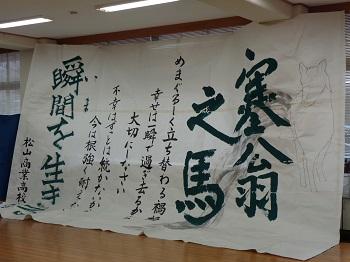 塞翁
之馬
めまぐるしく立ち替わる禍
幸せは一瞬で過ぎ去るか
大切にしなさい
不幸はずっとは続かないか
今は根強く耐え
いま
瞬間を生き
松山商業高校